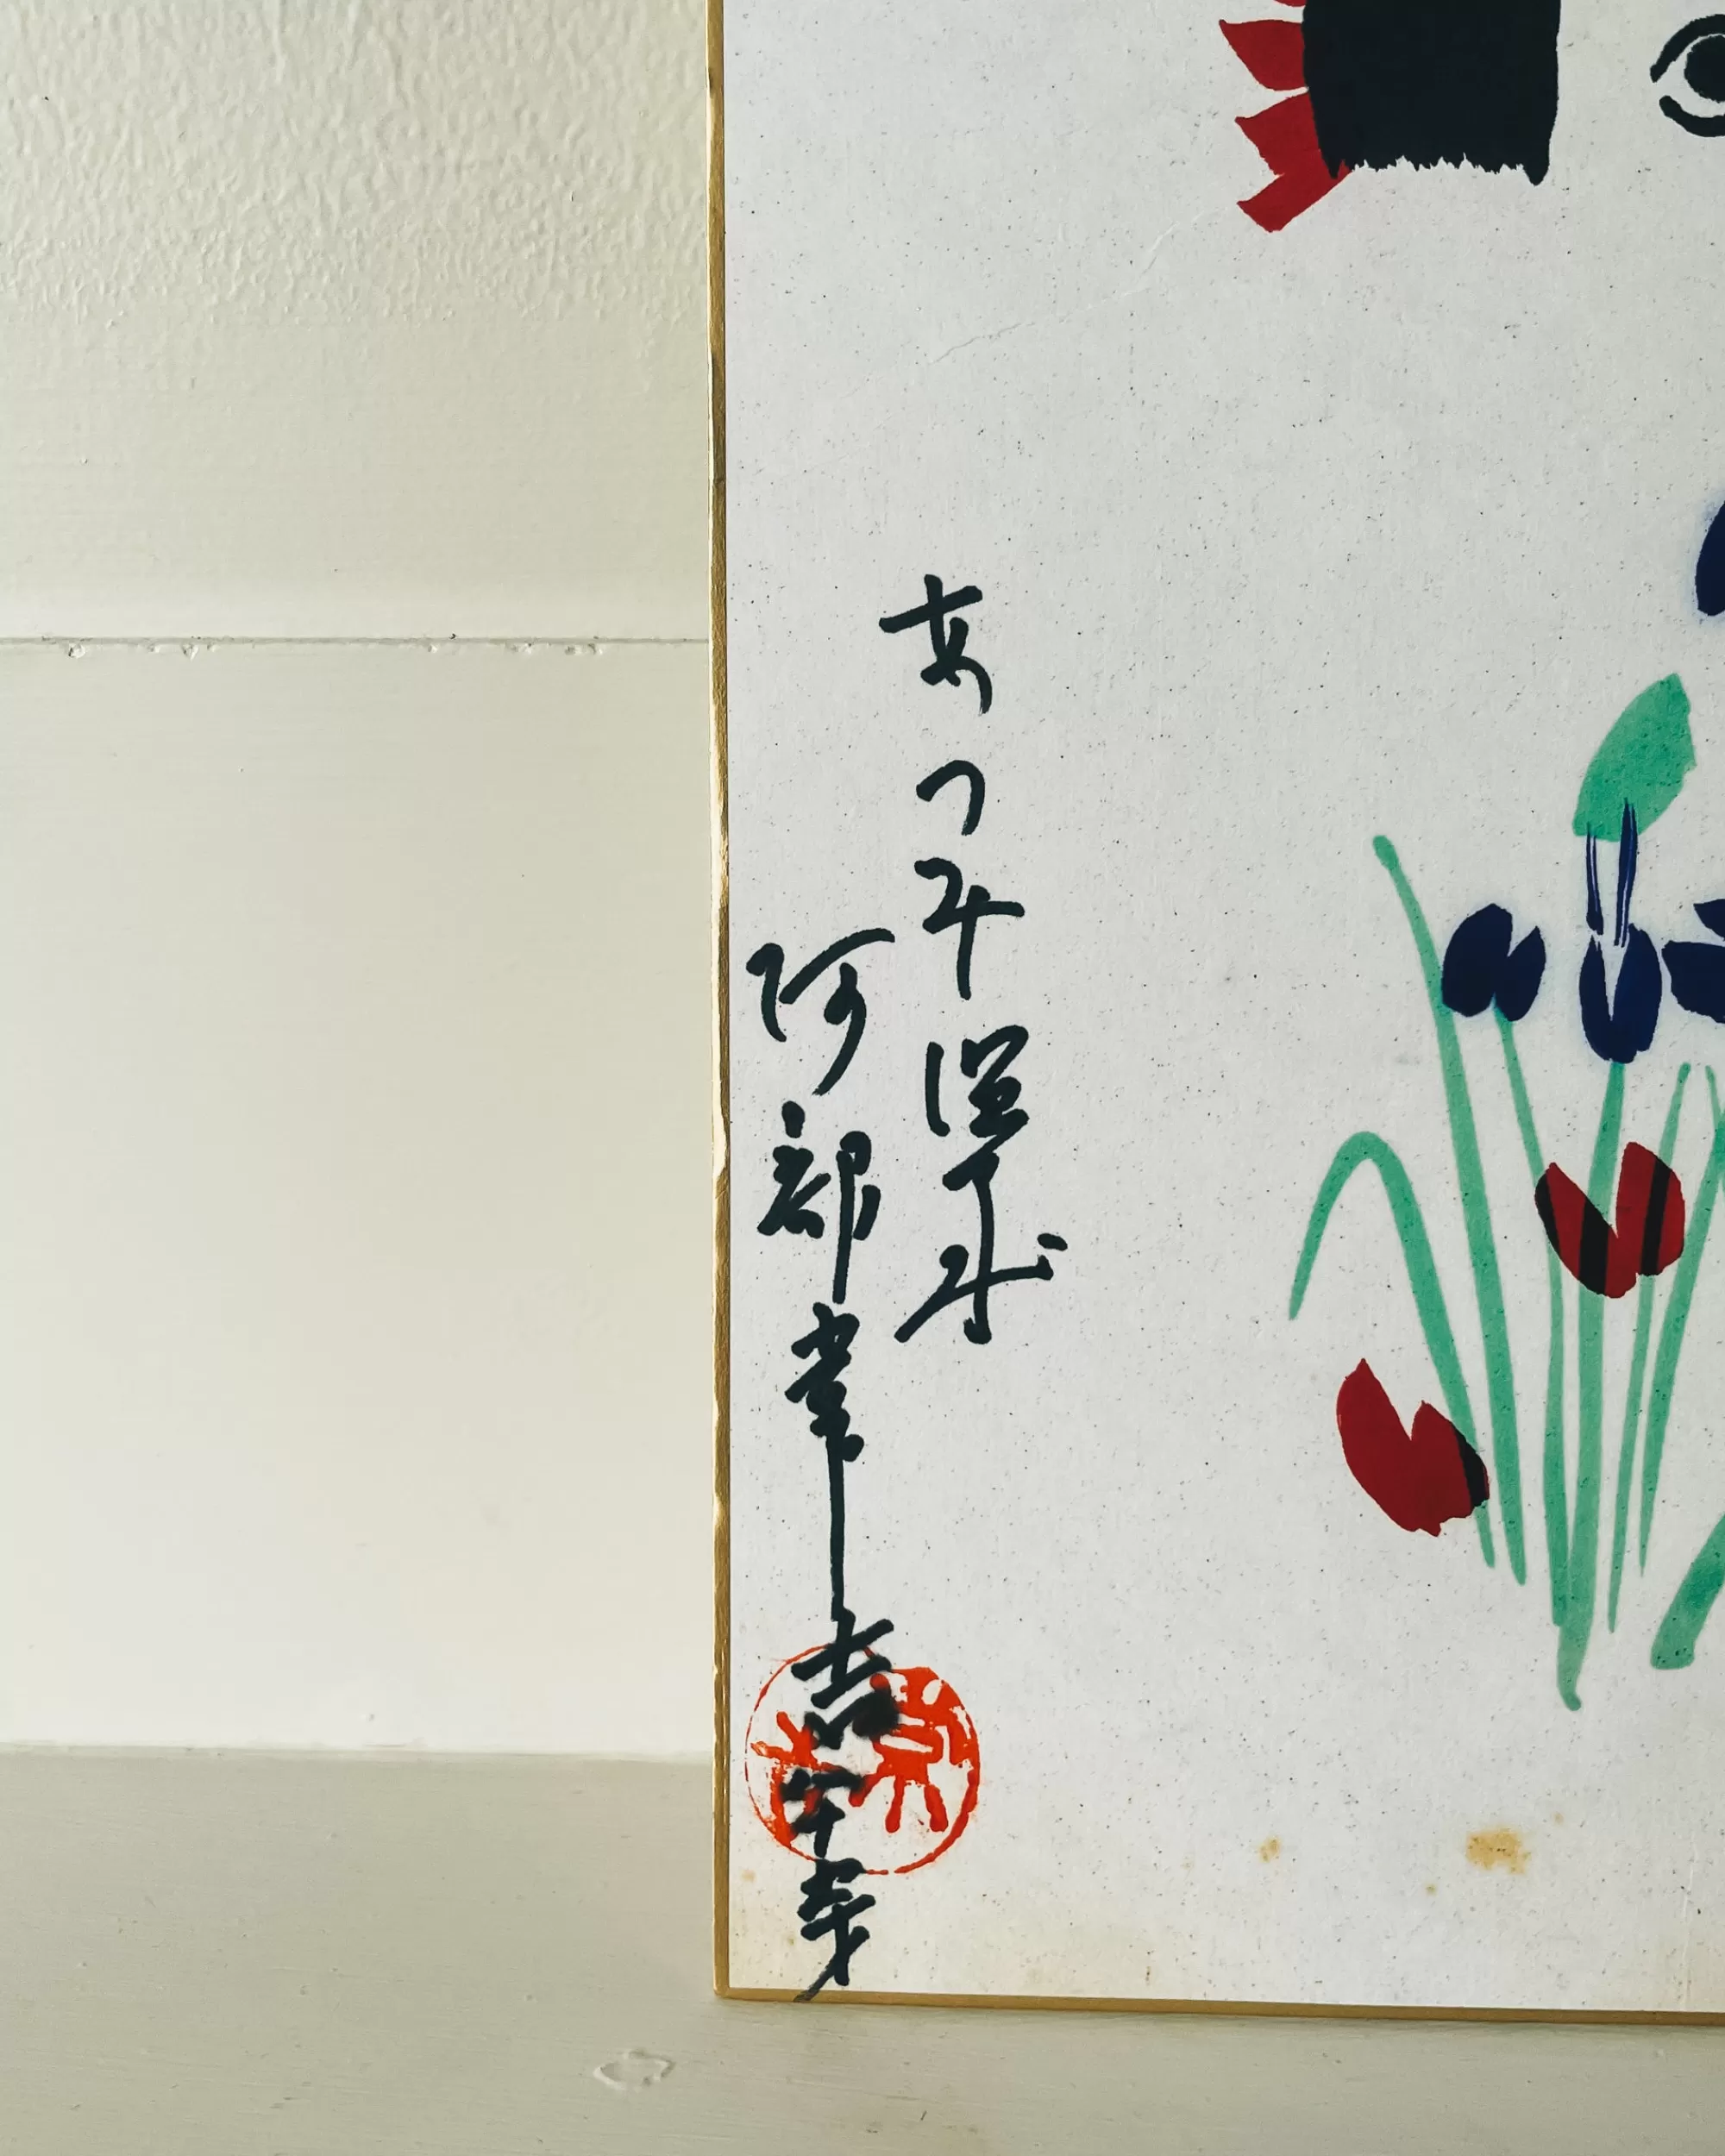 あつみ温泉
阿部常吉